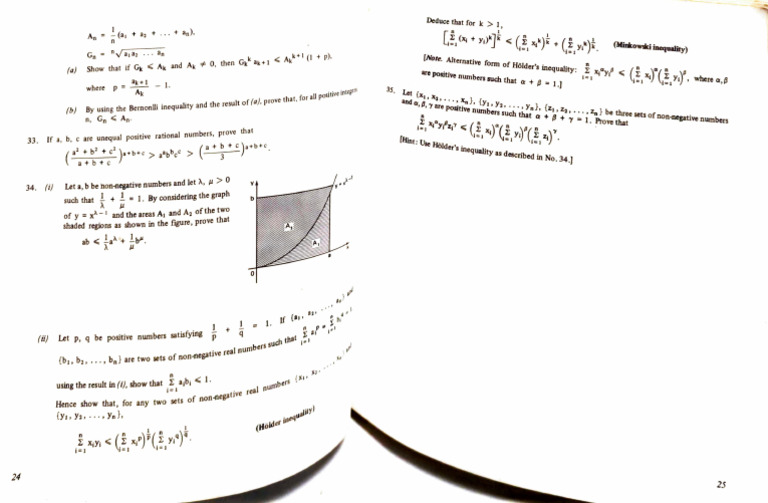 Aₙ = 1/n (a₁ + a₂ + . . . + aₙ),
Gₙ = ⁿ√a₁a₂ ... aₙ
(a) Show that if Gₖ ⩽ Aₖ and Aₖ ≠ 0, then Gₖᵏ aₖ₊₁ ⩽ Aₖᵏ⁺¹ (1 + p),
where p = aₖ₊₁/Aₖ − 1.
(b) By using the Bernoulli inequality and the result of (a), prove that, for all positive integers
n, Gₙ ⩽ Aₙ.
33. If a, b, c are unequal positive rational numbers, prove that
((a² + b² + c²)/(a + b + c))ᵃ⁺ᵇ⁺ᶜ > aᵃbᵇcᶜ > ((a + b + c)/3)ᵃ⁺ᵇ⁺ᶜ.
34. (i) Let a, b be non-negative numbers and let λ, μ > 0
such that 1/λ + 1/μ = 1. By considering the graph
of y = x^(λ−1) and the areas A₁ and A₂ of the two
shaded regions as shown in the figure, prove that
ab ⩽ (1/λ)a^λ + (1/μ)b^μ.
b
A₂
A₁
a
0
(ii) Let p, q be positive numbers satisfying 1/p + 1/q = 1. If {a₁, a₂, . . . , aₙ} and
{b₁, b₂, . . . , bₙ} are two sets of non-negative real numbers such that
using the result in (i), show that Σⁿᵢ₌₁ aᵢbᵢ ⩽ 1.
Hence show that, for any two sets of non-negative real numbers {x₁, x₂, . . . , xₙ} and
{y₁, y₂, . . . , yₙ},
Σⁿᵢ₌₁ xᵢyᵢ ⩽ (Σⁿᵢ₌₁ xᵢᵖ)^(1/p) (Σⁿᵢ₌₁ yᵢ^q)^(1/q). (Hölder inequality)
24
Deduce that for k > 1,
[Σⁿᵢ₌₁ (xᵢ + yᵢ)ᵏ]^(1/k) ⩽ (Σⁿᵢ₌₁ xᵢᵏ)^(1/k) + (Σⁿᵢ₌₁ yᵢᵏ)^(1/k). (Minkowski inequality)
[Note. Alternative form of Hölder's inequality: Σⁿᵢ₌₁ xᵢ^α yᵢ^β ⩽ (Σⁿᵢ₌₁ xᵢ)^α (Σⁿᵢ₌₁ yᵢ)^β, where α, β
are positive numbers such that α + β = 1.]
35. Let {x₁, x₂, . . . , xₙ}, {y₁, y₂, . . . , yₙ}, {z₁, z₂, . . . , zₙ} be three sets of non-negative numbers
and α, β, γ are positive numbers such that α + β + γ = 1. Prove that
Σⁿᵢ₌₁ xᵢ^α yᵢ^β zᵢ^γ ⩽ (Σⁿᵢ₌₁ xᵢ)^α (Σⁿᵢ₌₁ yᵢ)^β (Σⁿᵢ₌₁ zᵢ)^γ.
[Hint: Use Hölder's inequality as described in No. 34.]
25